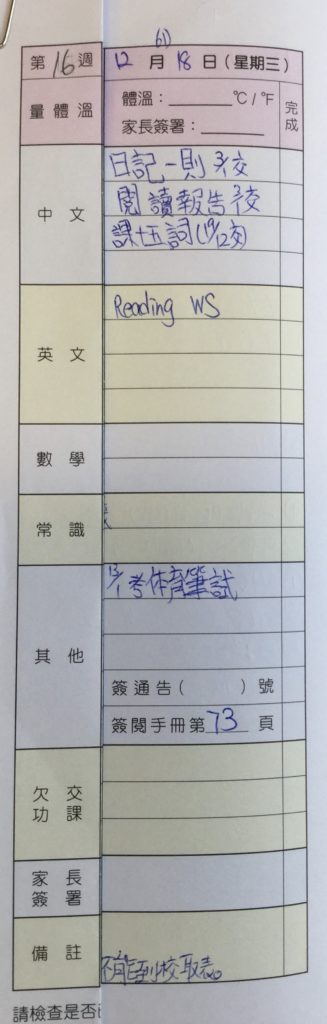 (61)
第16週 12月18日(星期三)
量體溫 體溫：______℃/℉ 完成
家長簽署：______
中文 日記一則 3/交
閱讀報告 3/交
課十五詞(19/12交)
英文 Reading WS
數學
常識
其他 考体育筆試
簽通告( )號
簽閱手冊第73頁
欠交功課
家長簽署
備註 不能到校取表。
請檢查是否